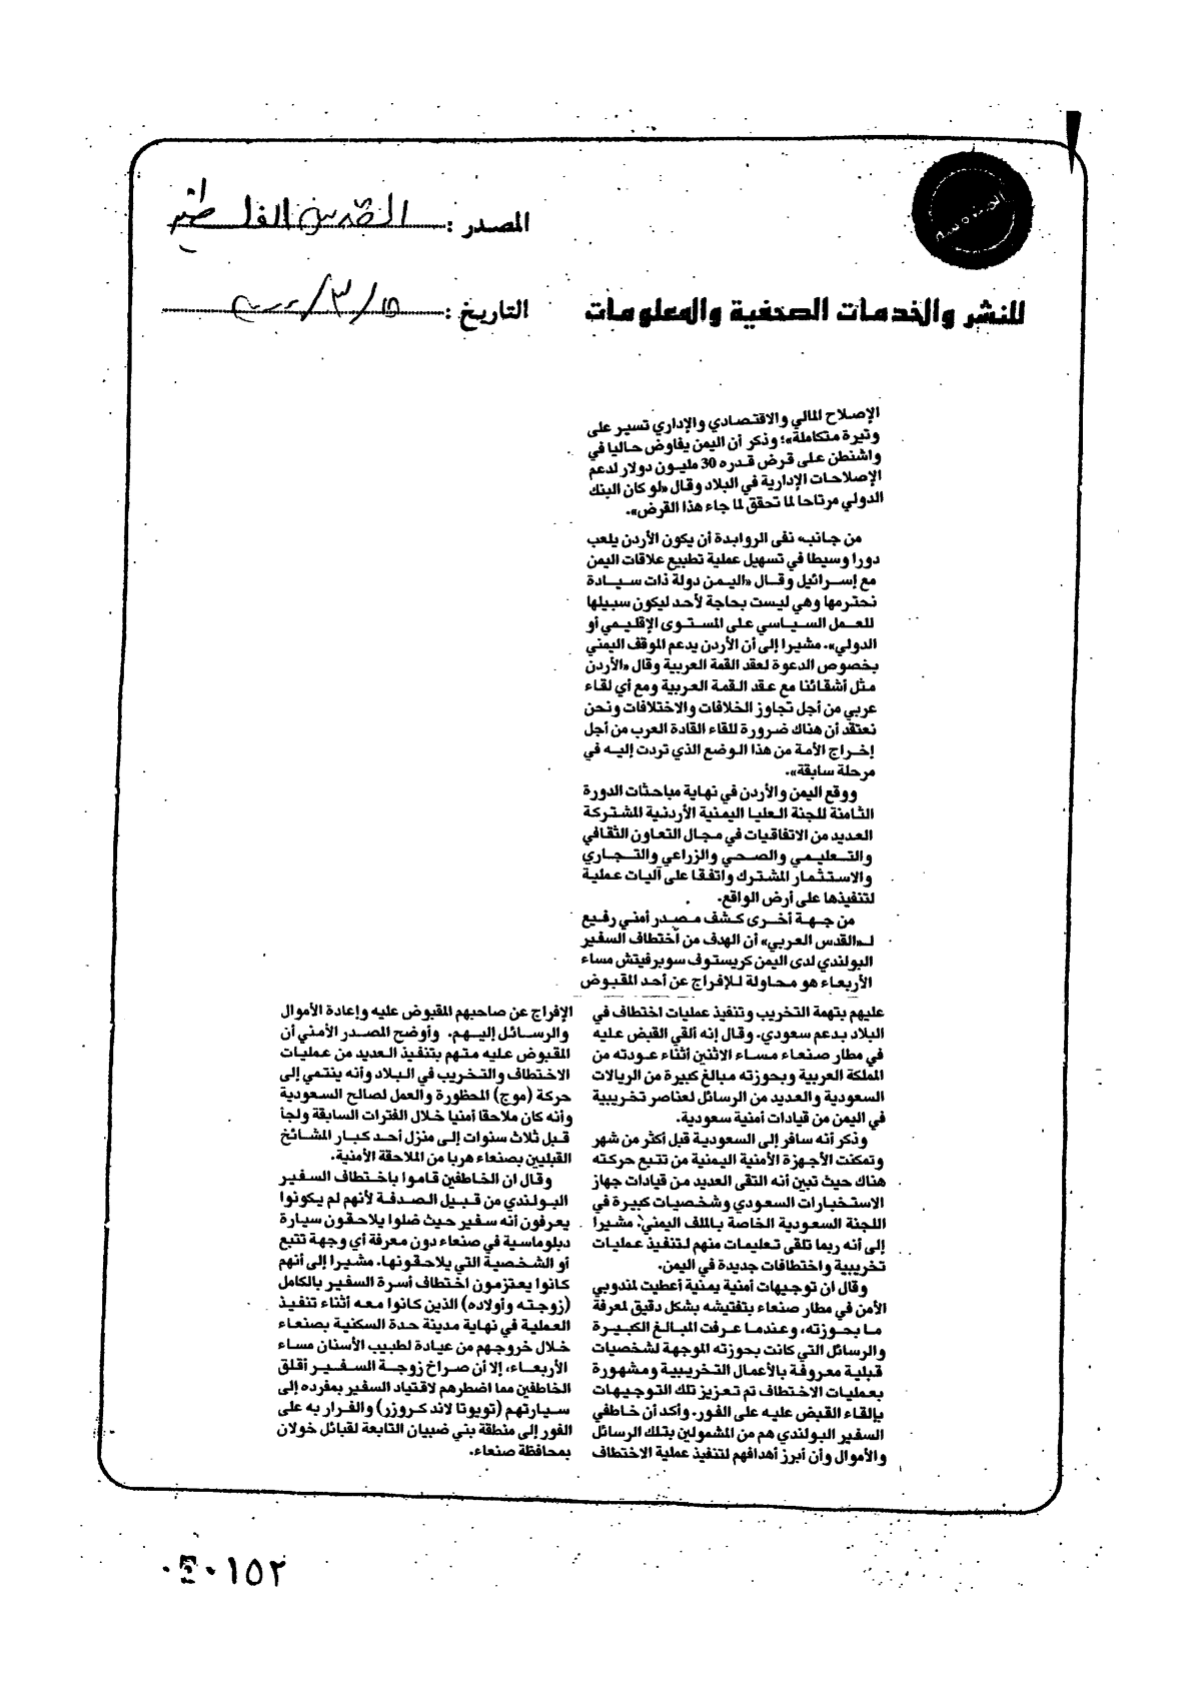 المصدر : القدس الفلسطينية
للنشر والخدمات الصحفية والمعلومات
التاريخ :
الإصلاح المالي والاقتصادي والإداري تسير على
وتيرة متكاملة»؛ وذكر أن اليمن يفاوض حاليا في
واشنطن على قرض قدره 30 مليون دولار لدعم
الإصلاحات الإدارية في البلاد وقال «لو كان البنك
الدولي مرتاحا لما تحقق لما جاء هذا القرض».
من جانبه نفى الروابدة أن يكون الأردن يلعب
دورا وسيطا في تسهيل عملية تطبيع علاقات اليمن
مع إسرائيل وقال «اليمن دولة ذات سيادة
نحترمها وهي ليست بحاجة لأحد ليكون سبيلها
للعمل السياسي على المستوى الإقليمي أو
الدولي». مشيرا إلى أن الأردن يدعم الموقف اليمني
بخصوص الدعوة لعقد القمة العربية وقال «الأردن
مثل أشقائنا مع عقد القمة العربية ومع أي لقاء
عربي من أجل تجاوز الخلافات والاختلافات ونحن
نعتقد أن هناك ضرورة للقاء القادة العرب من أجل
إخراج الأمة من هذا الوضع الذي تردت إليه في
مرحلة سابقة».
ووقع اليمن والأردن في نهاية مباحثات الدورة
الثامنة للجنة العليا اليمنية الأردنية المشتركة
العديد من الاتفاقيات في مجال التعاون الثقافي
والتعليمي والصحي والزراعي والتجاري
والاستثمار المشترك واتفقا على آليات عملية
لتنفيذها على أرض الواقع.
من جهة أخرى كشف مصدر أمني رفيع
لـ«القدس العربي» أن الهدف من أختطاف السفير
البولندي لدى اليمن كريستوف سوبرفيتش مساء
الأربعاء هو محاولة للإفراج عن أحد المقبوض
عليهم بتهمة التخريب وتنفيذ عمليات اختطاف في
البلاد بدعم سعودي. وقال إنه ألقي القبض عليه
في مطار صنعاء مساء الاثنين أثناء عودته من
المملكة العربية وبحوزته مبالغ كبيرة من الريالات
السعودية والعديد من الرسائل لعناصر تخريبية
في اليمن من قيادات أمنية سعودية.
وذكر أنه سافر إلى السعودية قبل أكثر من شهر
وتمكنت الأجهزة الأمنية اليمنية من تتبع حركته
هناك حيث تبين أنه التقى العديد من قيادات جهاز
الاستخبارات السعودي وشخصيات كبيرة في
اللجنة السعودية الخاصة بالملف اليمني؛ مشيرا
إلى أنه ربما تلقى تعليمات منهم لتنفيذ عمليات
تخريبية واختطافات جديدة في اليمن.
وقال ان توجيهات أمنية يمنية أعطيت لمندوبي
الأمن في مطار صنعاء بتفتيشه بشكل دقيق لمعرفة
ما بحوزته، وعندما عرفت المبالغ الكبيرة
والرسائل التي كانت بحوزته الموجهة لشخصيات
قبلية معروفة بالأعمال التخريبية ومشهورة
بعمليات الاختطاف تم تعزيز تلك التوجيهات
بإلقاء القبض عليه على الفور. وأكد أن خاطفي
السفير البولندي هم من المشمولين بتلك الرسائل
والأموال وأن أبرز أهدافهم لتنفيذ عملية الاختطاف
الإفراج عن صاحبهم المقبوض عليه وإعادة الأموال
والرسائل إليهم. وأوضح المصدر الأمني أن
المقبوض عليه متهم بتنفيذ العديد من عمليات
الاختطاف والتخريب في البلاد وأنه ينتمي إلى
حركة (موج) المحظورة والعمل لصالح السعودية
وأنه كان ملاحقا أمنيا خلال الفترات السابقة ولجأ
قبل ثلاث سنوات إلى منزل أحد كبار المشائخ
القبليين بصنعاء هربا من الملاحقة الأمنية.
وقال ان الخاطفين قاموا باختطاف السفير
البولندي من قبيل الصدفة لأنهم لم يكونوا
يعرفون أنه سفير حيث ضلوا يلاحقون سيارة
دبلوماسية في صنعاء دون معرفة أي وجهة تتبع
أو الشخصية التي يلاحقونها. مشيرا إلى أنهم
كانوا يعتزمون اختطاف أسرة السفير بالكامل
(زوجته وأولاده) الذين كانوا معه أثناء تنفيذ
العملية في نهاية مدينة حدة السكنية بصنعاء
خلال خروجهم من عيادة لطبيب الأسنان مساء
الأربعاء، إلا أن صراخ زوجة السفير أقلق
الخاطفين مما اضطرهم لاقتياد السفير بمفرده إلى
سيارتهم (تويوتا لاند كروزر) والفرار به على
الفور إلى منطقة بني ضبيان التابعة لقبائل خولان
بمحافظة صنعاء.